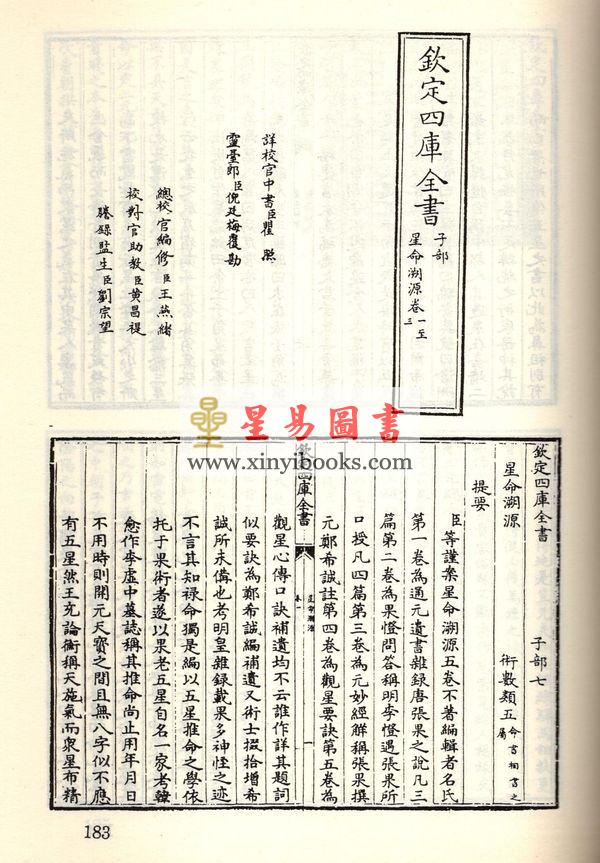 欽定四庫全書 子部
星命溯源卷一至三
詳校官中書臣瞿
靈臺郎臣倪廷梅覆勘
總校官編修臣王燕緒
校對官助教臣黃昌禔
謄錄監生臣劉宗望
星易圖書
www.xinyibooks.com
欽定四庫全書 子部七
星命溯源 術數類五 命書相書之屬
提要
臣等謹案星命溯源五卷不著編輯者名氏
第一卷為通元遺書雜錄唐張果之說凡三
篇第二卷為果憕問答稱明李憕遇張果所
口授凡四篇第三卷為元妙經解稱張果撰
元鄭希誠註第四卷為觀星要訣第五卷為
欽定四庫全書
星命溯源
卷一
一
觀星心傳口訣補遺均不云誰作詳其題詞
似要訣為鄭希誠編補遺又術士掇拾增希
誠所未備也考明皇雜錄載果多神怪之迹
不言其知祿命獨是編以五星推命之學依
托于果術者遂以果老五星自名一家考韓
愈作李虛中墓誌稱其推命尚止用年月日
不用時則開元天寶之間且無八字似不應
有五星然王充論衡稱天施氣而衆星布精
183